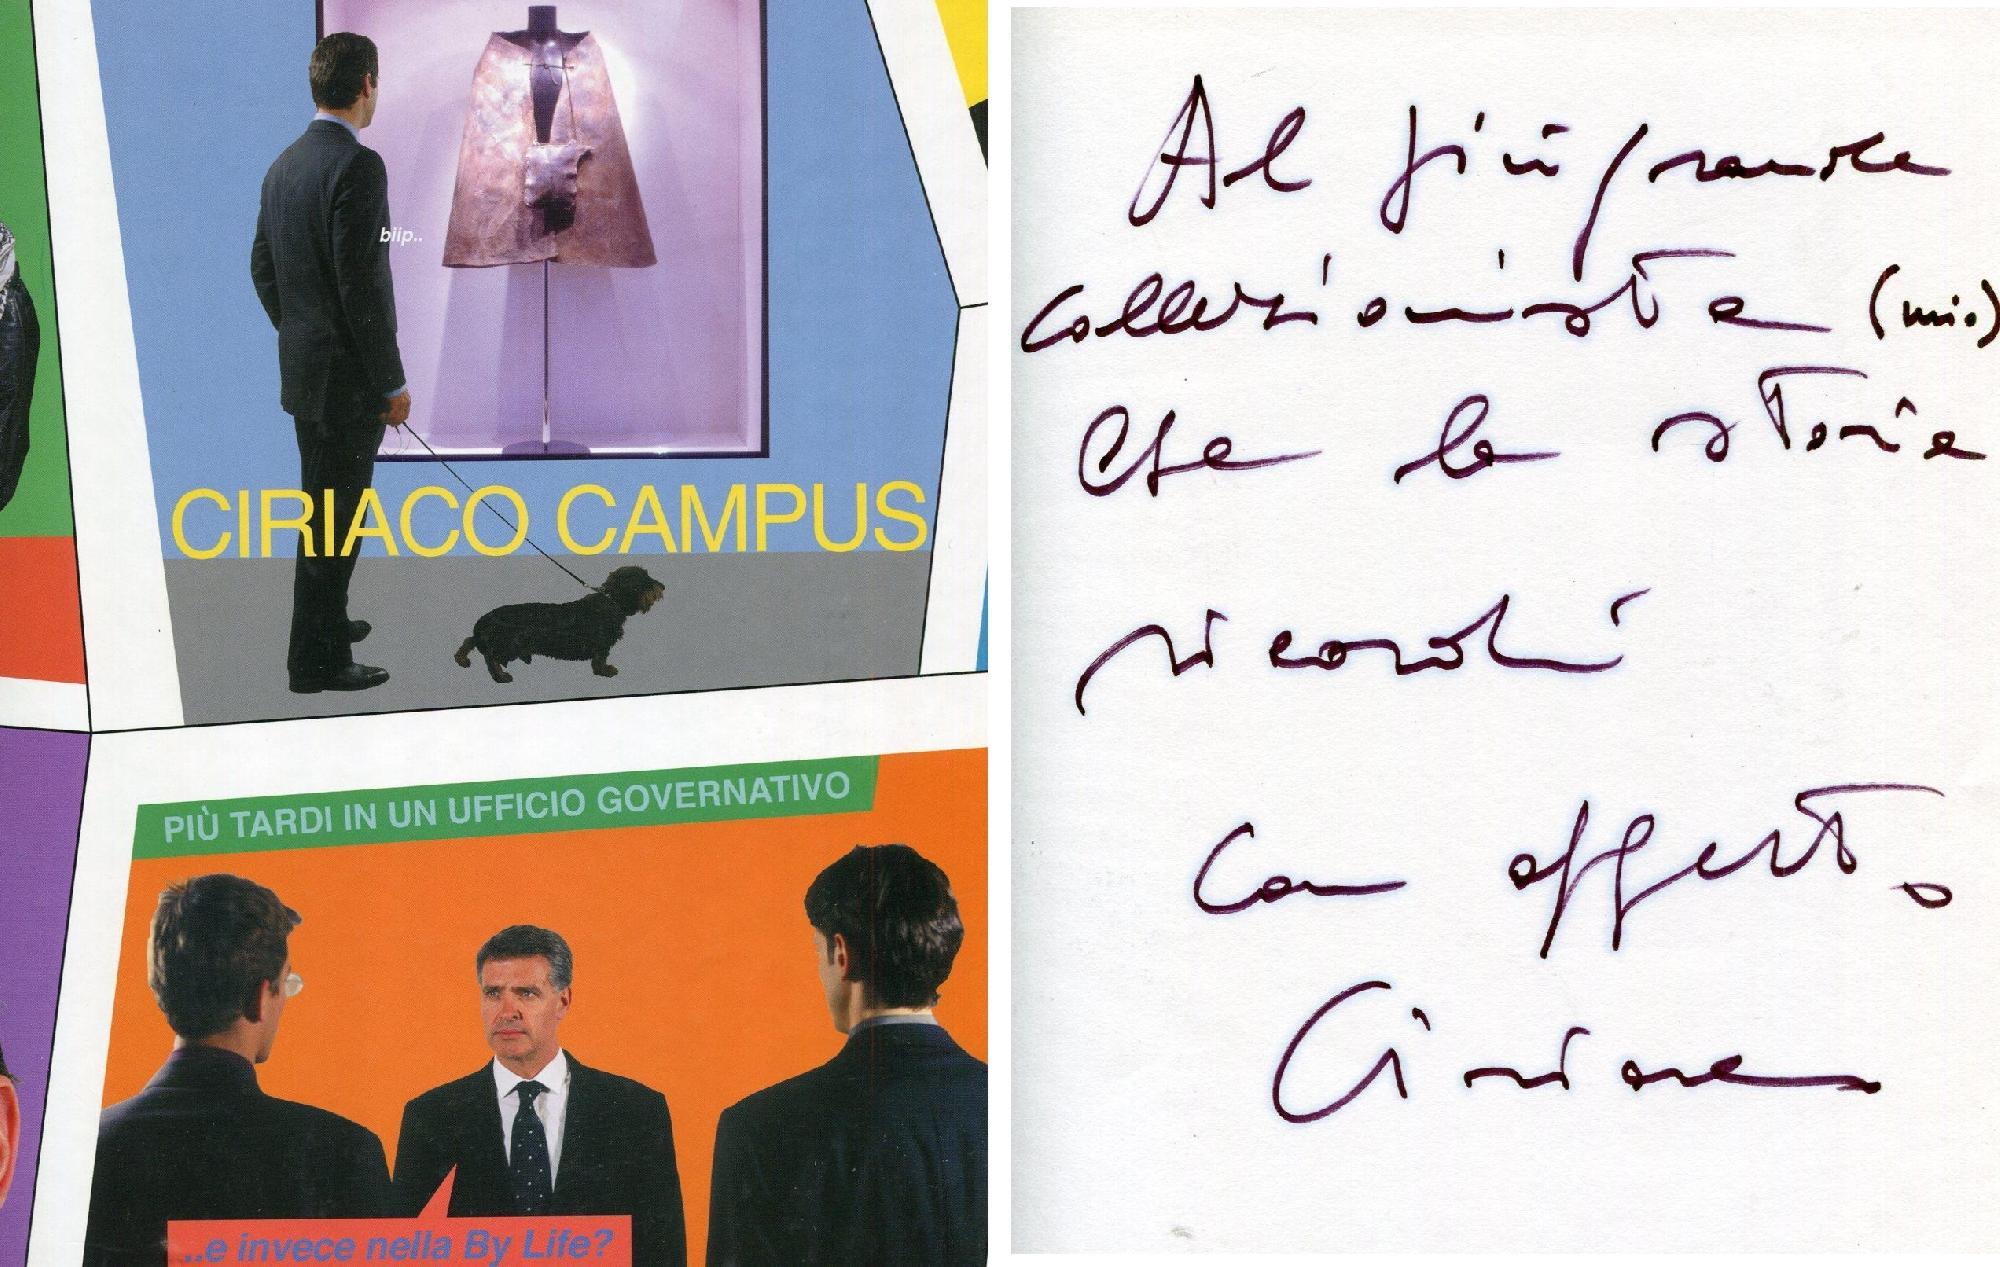 biip..
CIRIACO CAMPUS
PIÙ TARDI IN UN UFFICIO GOVERNATIVO
..e invece nella By Life?
Al più grande
collezionista (mio)
Che la storia
ricordi
Con affetto
Ciriaco